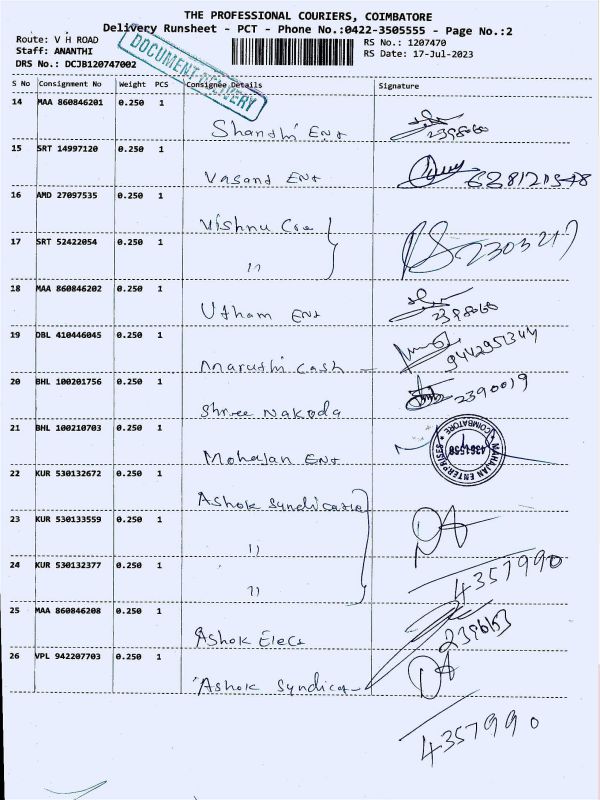 THE PROFESSIONAL COURIERS, COIMBATORE
Delivery Runsheet - PCT - Phone No.:0422-3505555 - Page No.:2
Route: V H ROAD
Staff: ANANTHI
DRS No.: DCJB120747002
RS No.: 1207470
RS Date: 17-Jul-2023
DOCUMENT DELIVERY
S No Consignment No Weight PCS Consignee Details Signature
14 MAA 860846201 0.250 1
Shanthi Ent 2398060
15 SRT 14997120 0.250 1
Vasand Ent
16 AMD 27097535 0.250 1
Vishnu Cre
17 SRT 52422054 0.250 1
11 2303217
18 MAA 860846202 0.250 1
Utham Ent 2398060
19 DBL 410446045 0.250 1
Maruthi Cash 9442951344
20 BHL 100201756 0.250 1
Shree Nakoda 2390019
21 BHL 100210703 0.250 1
Mohajan Ent
MAHAJAN ENTERPRISES * COIMBATORE *
4361558
22 KUR 530132672 0.250 1
Ashok Syndicate
23 KUR 530133559 0.250 1
11
24 KUR 530132377 0.250 1
11 4357990
25 MAA 860846208 0.250 1
Ashok Elect
26 VPL 942207703 0.250 1
Ashok Syndicat
4357990